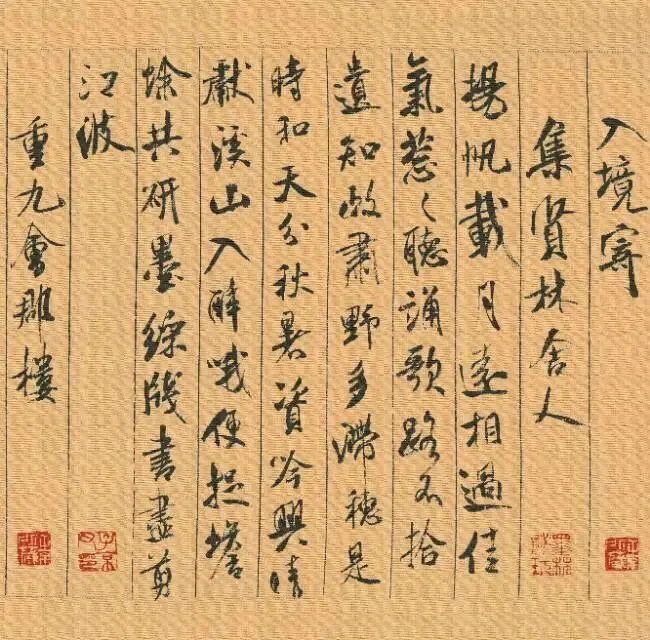 入境寄
集賢林舍人
揚帆載月遠相過佳
氣葱〻聽誦歌路不拾
遺知政肅野多滯穗是
時和天分秋暑資吟興晴
獻溪山入醉哦便捉蟾
蜍共研墨綵牋書盡剪
江波
重九會郡樓